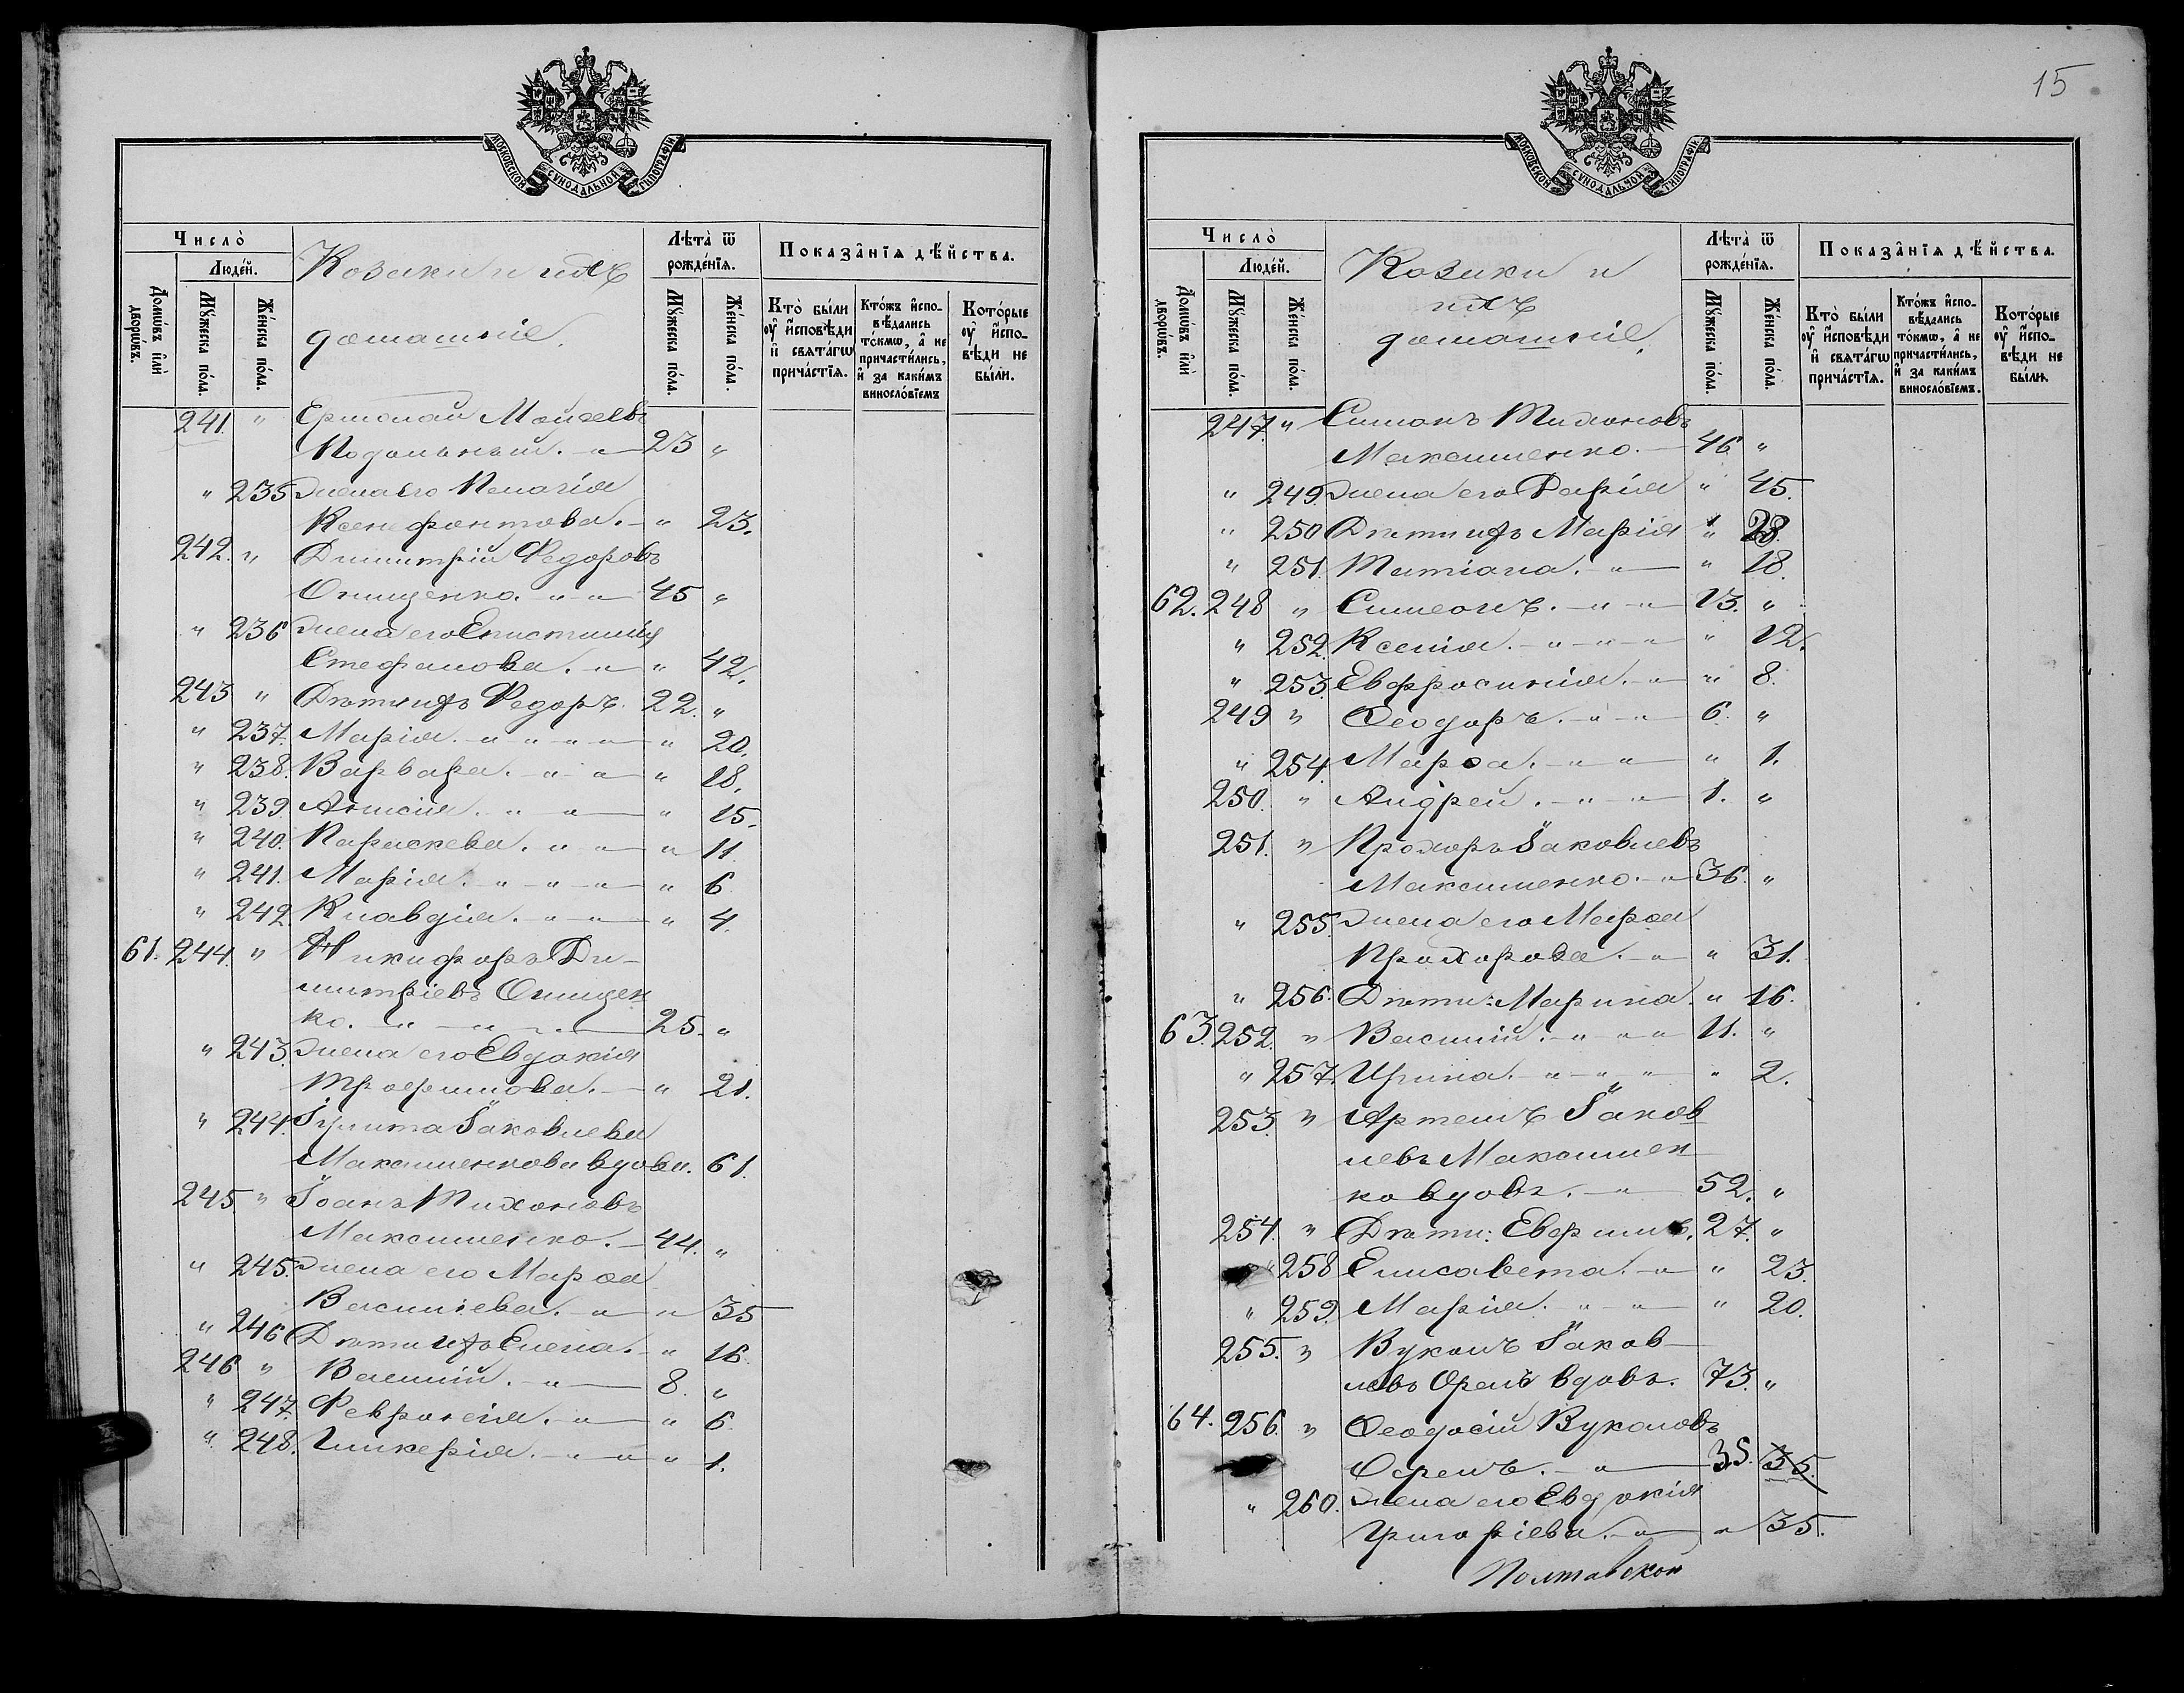 МОСКОВСКОЙ СѴНОДАЛЬНОЙ ТИПОГРАФІИ
Число̀
Люде́й.
Домѡ́въ и҆лѝ дворѡ́въ.
Мꙋ́жеска по́ла.
Же́нска по́ла.
Козаки и ихъ
домашніе.
Лѣта̀ ѿ рожде́нїѧ.
Мꙋ́жеска по́ла.
Же́нска по́ла.
Показа̑нїѧ дѣ́йства.
Кто̀ бы́ли ᲂу҆ и҆сповѣди и҆ свѧта́гѡ прича́стїѧ.
Кто́жъ и҆спо-вѣ́дались то́кмѡ, а҆ не причасти́лись, и҆ за каки́мъ винословїемъ
Кото́рые ᲂу҆ и҆спо-вѣди не бы́ли.
241. " Ермолай Моисеевъ
Подольный. - " - 23 "
" 235 Жена его Пелагія
Ксенофонтова. - " 23.
242. " Димитрій Федоровъ
Онищенко. - " - " - 45 "
" 236 Жена его Епистимія
Стефанова. - " - " 42.
243 " Дѣти ихъ Федоръ. 22. "
" 237. Марія. - " - " - " - " - " 20.
" 238. Варвара. - " - " - " 18.
" 239. Анисія. - " - " - " 15.
" 240. Параскева. - " - " - " 11
" 241. Марія. - " - " - " - " 6
" 242. Клавдія. - " - " - " 4.
61. 244. " Никифоръ Ди-
митріевъ Онищен
ко. - " - " - " - 25. "
" 243. Жена его Евдокія
Трофимова. - " 21.
" 244. Іулита Іаковлева
Максименкова вдова. 61.
245 " Іоанъ Тихоновъ
Максименко. - 44. "
" 245. Жена его Марѳа
Васильева. - " - " 35
" 246 Дѣти ихъ Елена. - " 16.
246 " Василій. - " - 8. "
" 247. Февронія. - " - " 6
" 248. Гликерія. - " - " - " 1.
15
МОСКОВСКОЙ СѴНОДАЛЬНОЙ ТИПОГРАФІИ
Число̀
Люде́й.
Домѡ́въ и҆лѝ дворѡ́въ.
Мꙋ́жеска по́ла.
Же́нска по́ла.
Козаки и
ихъ
домашніе.
Лѣта̀ ѿ рожде́нїѧ.
Мꙋ́жеска по́ла.
Же́нска по́ла.
Показа̑нїѧ дѣ́йства.
Кто̀ бы́ли ᲂу҆ и҆сповѣди и҆ свѧта́гѡ прича́стїѧ.
Кто́жъ и҆спо-вѣ́дались то́кмѡ, а҆ не причасти́лись, и҆ за каки́мъ винословїемъ.
Кото́рые ᲂу҆ и҆спо-вѣди не бы́ли.
247. " Симонъ Тихоновъ
Максименко. - 46 "
" 249. Жена его Дарія " 45.
" 250 Дѣти ихъ Марія "
" 251. Татіана. - " - " 18.
62. 248 " Симеонъ. - " - " - 13. "
" 252. Ксенія. - " - " - " - " 12.
" 253. Евфросинія. - " - " 8.
249 " Ѳеодоръ. - " - " - 6. "
" 254. Марѳа. - " - " - " 1.
250. " Андрей. - " - " - 1. "
251. " Прохоръ Іаковлевъ
Максименко. - " - 36. "
" 255. Жена его Марѳа
Прохорова. - " - " 31.
" 256. Дѣти: Марина. " 16.
63. 252. " Василій. - " - " - " 11. "
" 257. Ирина. - " - " - " - " 2.
253. " Артемъ Іаков
левъ Максимен
ко вдовъ. - " - 52. "
254. " Дѣти: Евфимъ. 27. "
258 Елисавета. - " - " 23.
" 259. Марія. - " - " - " 20.
255. " Вуколъ Іаков-
левъ Орелъ вдовъ. 73. "
64. 256. " Ѳеодосій Вуколовъ
35. 35.
" 260. Жена его Евдокія
Григоріева. - " - " 35.
Полтавской